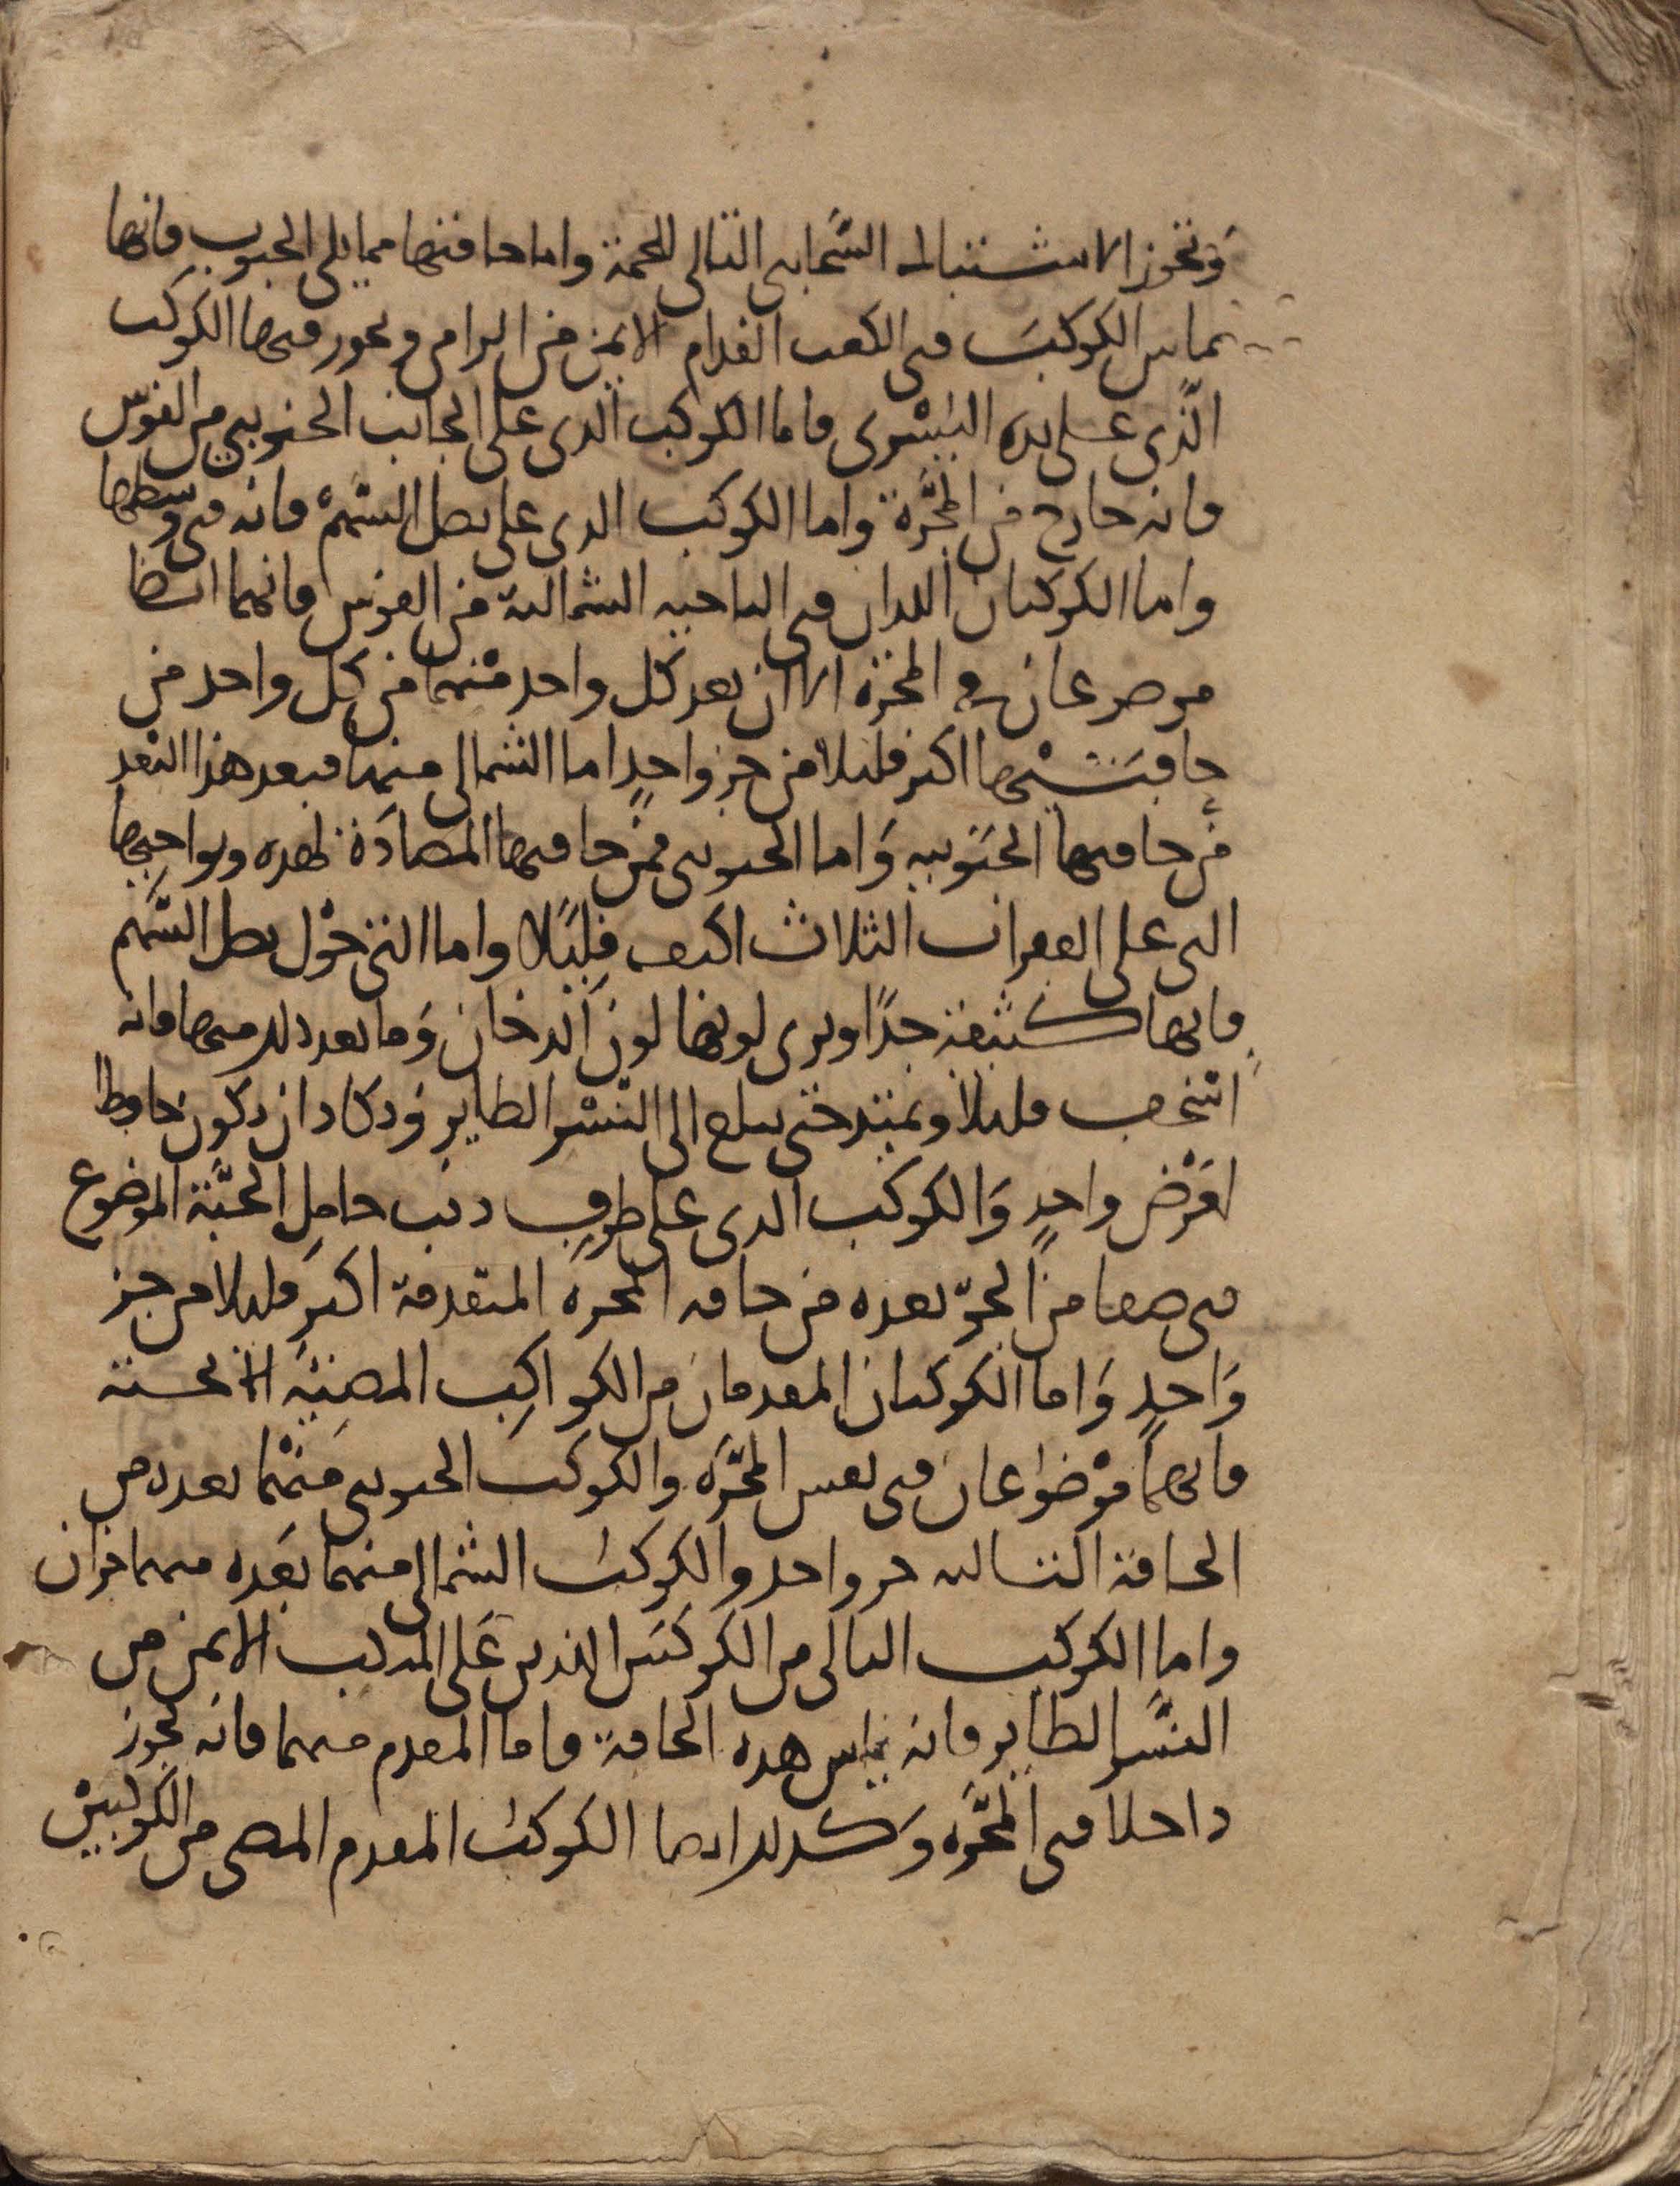 وتحوز الاشتباك السحابى التالى للحمة واما حافتها مما يلى الجنوب فانها
تماس الكوكب فى الكعب القدام الايمن من الرامى وتحوز فيها الكوكب
الذى على يده اليسرى فاما الكوكب الذى على الجانب الجنوبى من القوس
فانه خارج من المجرة واما الكوكب الذى على نصل السهم فانه فى وسطها
واما الكوكبان اللذان فى الناحيه الشمالية من القوس فانهما ايضا
موضوعان فى المجرة الا ان بعد كل واحد منهما من كل واحد من
حافتيها اكثر قليلا من جز واحد اما الشمالى منهما فبعد هذا البعد
من حافيها الجنوبيه واما الجنوبى فمن حافتها المضادة لهذه ونواحيها
التى على الفقرات الثلاث اكثف قليلا واما التى حول نصل السهم
فانها كثيفة جدا ويرى لونها لون الدخان وما بعد ذلك منها فانه
اسخف قليلا ويمتد حتى يبلغ الى النسر الطاير ويكاد ان يكون حافظا
لعرض واحد والكوكب الذى على طرف ذنب حامل الحية الموضوع
فى صفا من الجو بعده من حافه المجره المتقدمة اكثر قليلا من جز
واحد واما الكوكبان المتقدمان من الكواكب المضيه التى تحته
فانهما موضوعان فى نفس المجره والكوكب الجنوبى منهما بعده من
الحافة التاليه جز واحد والكوكب الشمالى منهما بعده منهما جزان
واما الكوكب التالى من الكوكبين اللذين على المنكب الايمن من
النسر الطاير فانه يماس هذه الحافة فاما المقدم منهما فانه يجوز
داخلا فى المجره وكذلك ايضا الكوكب المقدم المضى من الكوكبين